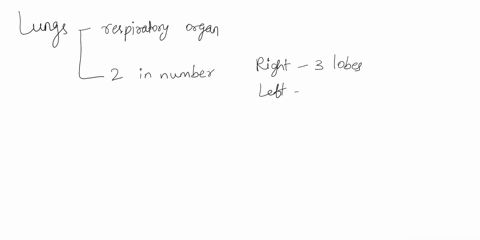 Lungs
respiratory organ
2 in number
Right - 3 lobes
Left -